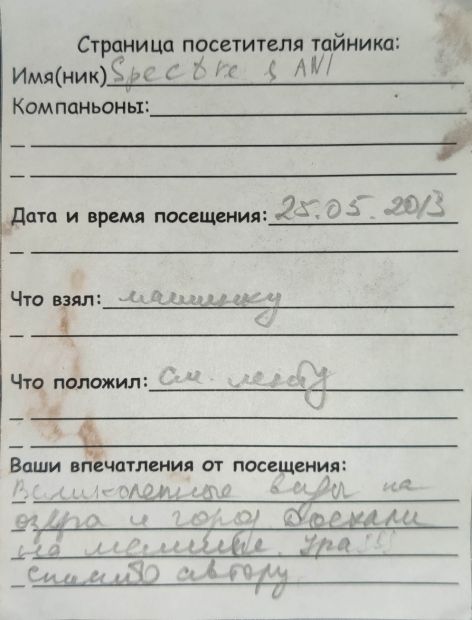 Страница посетителя тайника:
Имя(ник) Spectre & ANI
Компаньоны:
Дата и время посещения: 25.05.2013
Что взял: машинку
Что положил: см. ленту
Ваши впечатления от посещения:
Великолепные виды на
озера и город. Доехали
на машине. Ура!!!
Спасибо автору